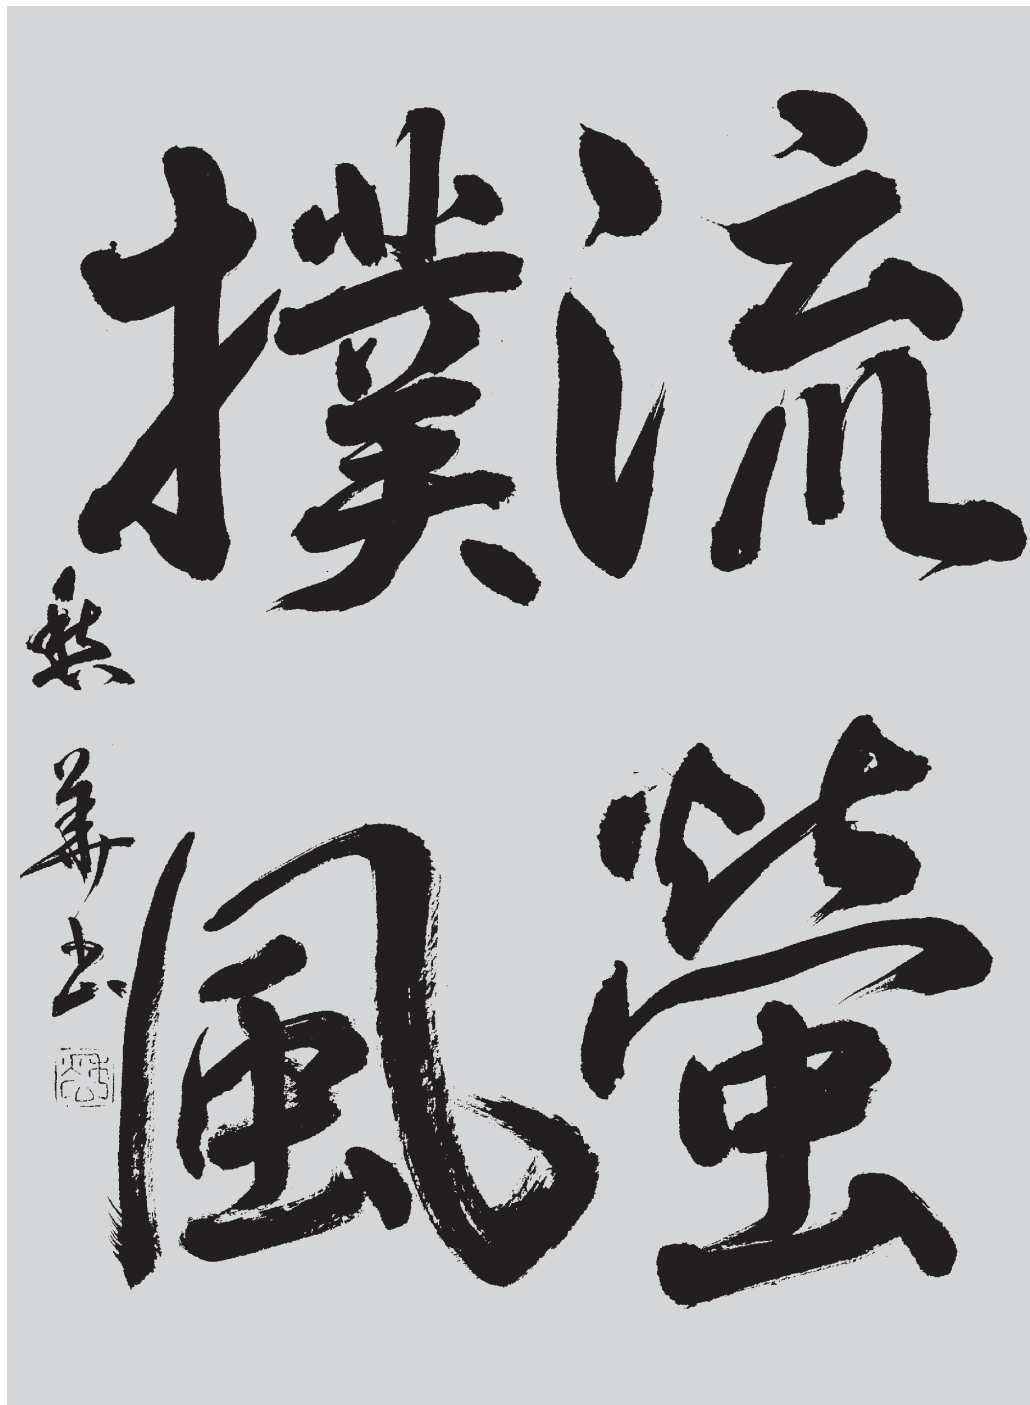 流螢
撲風
華書